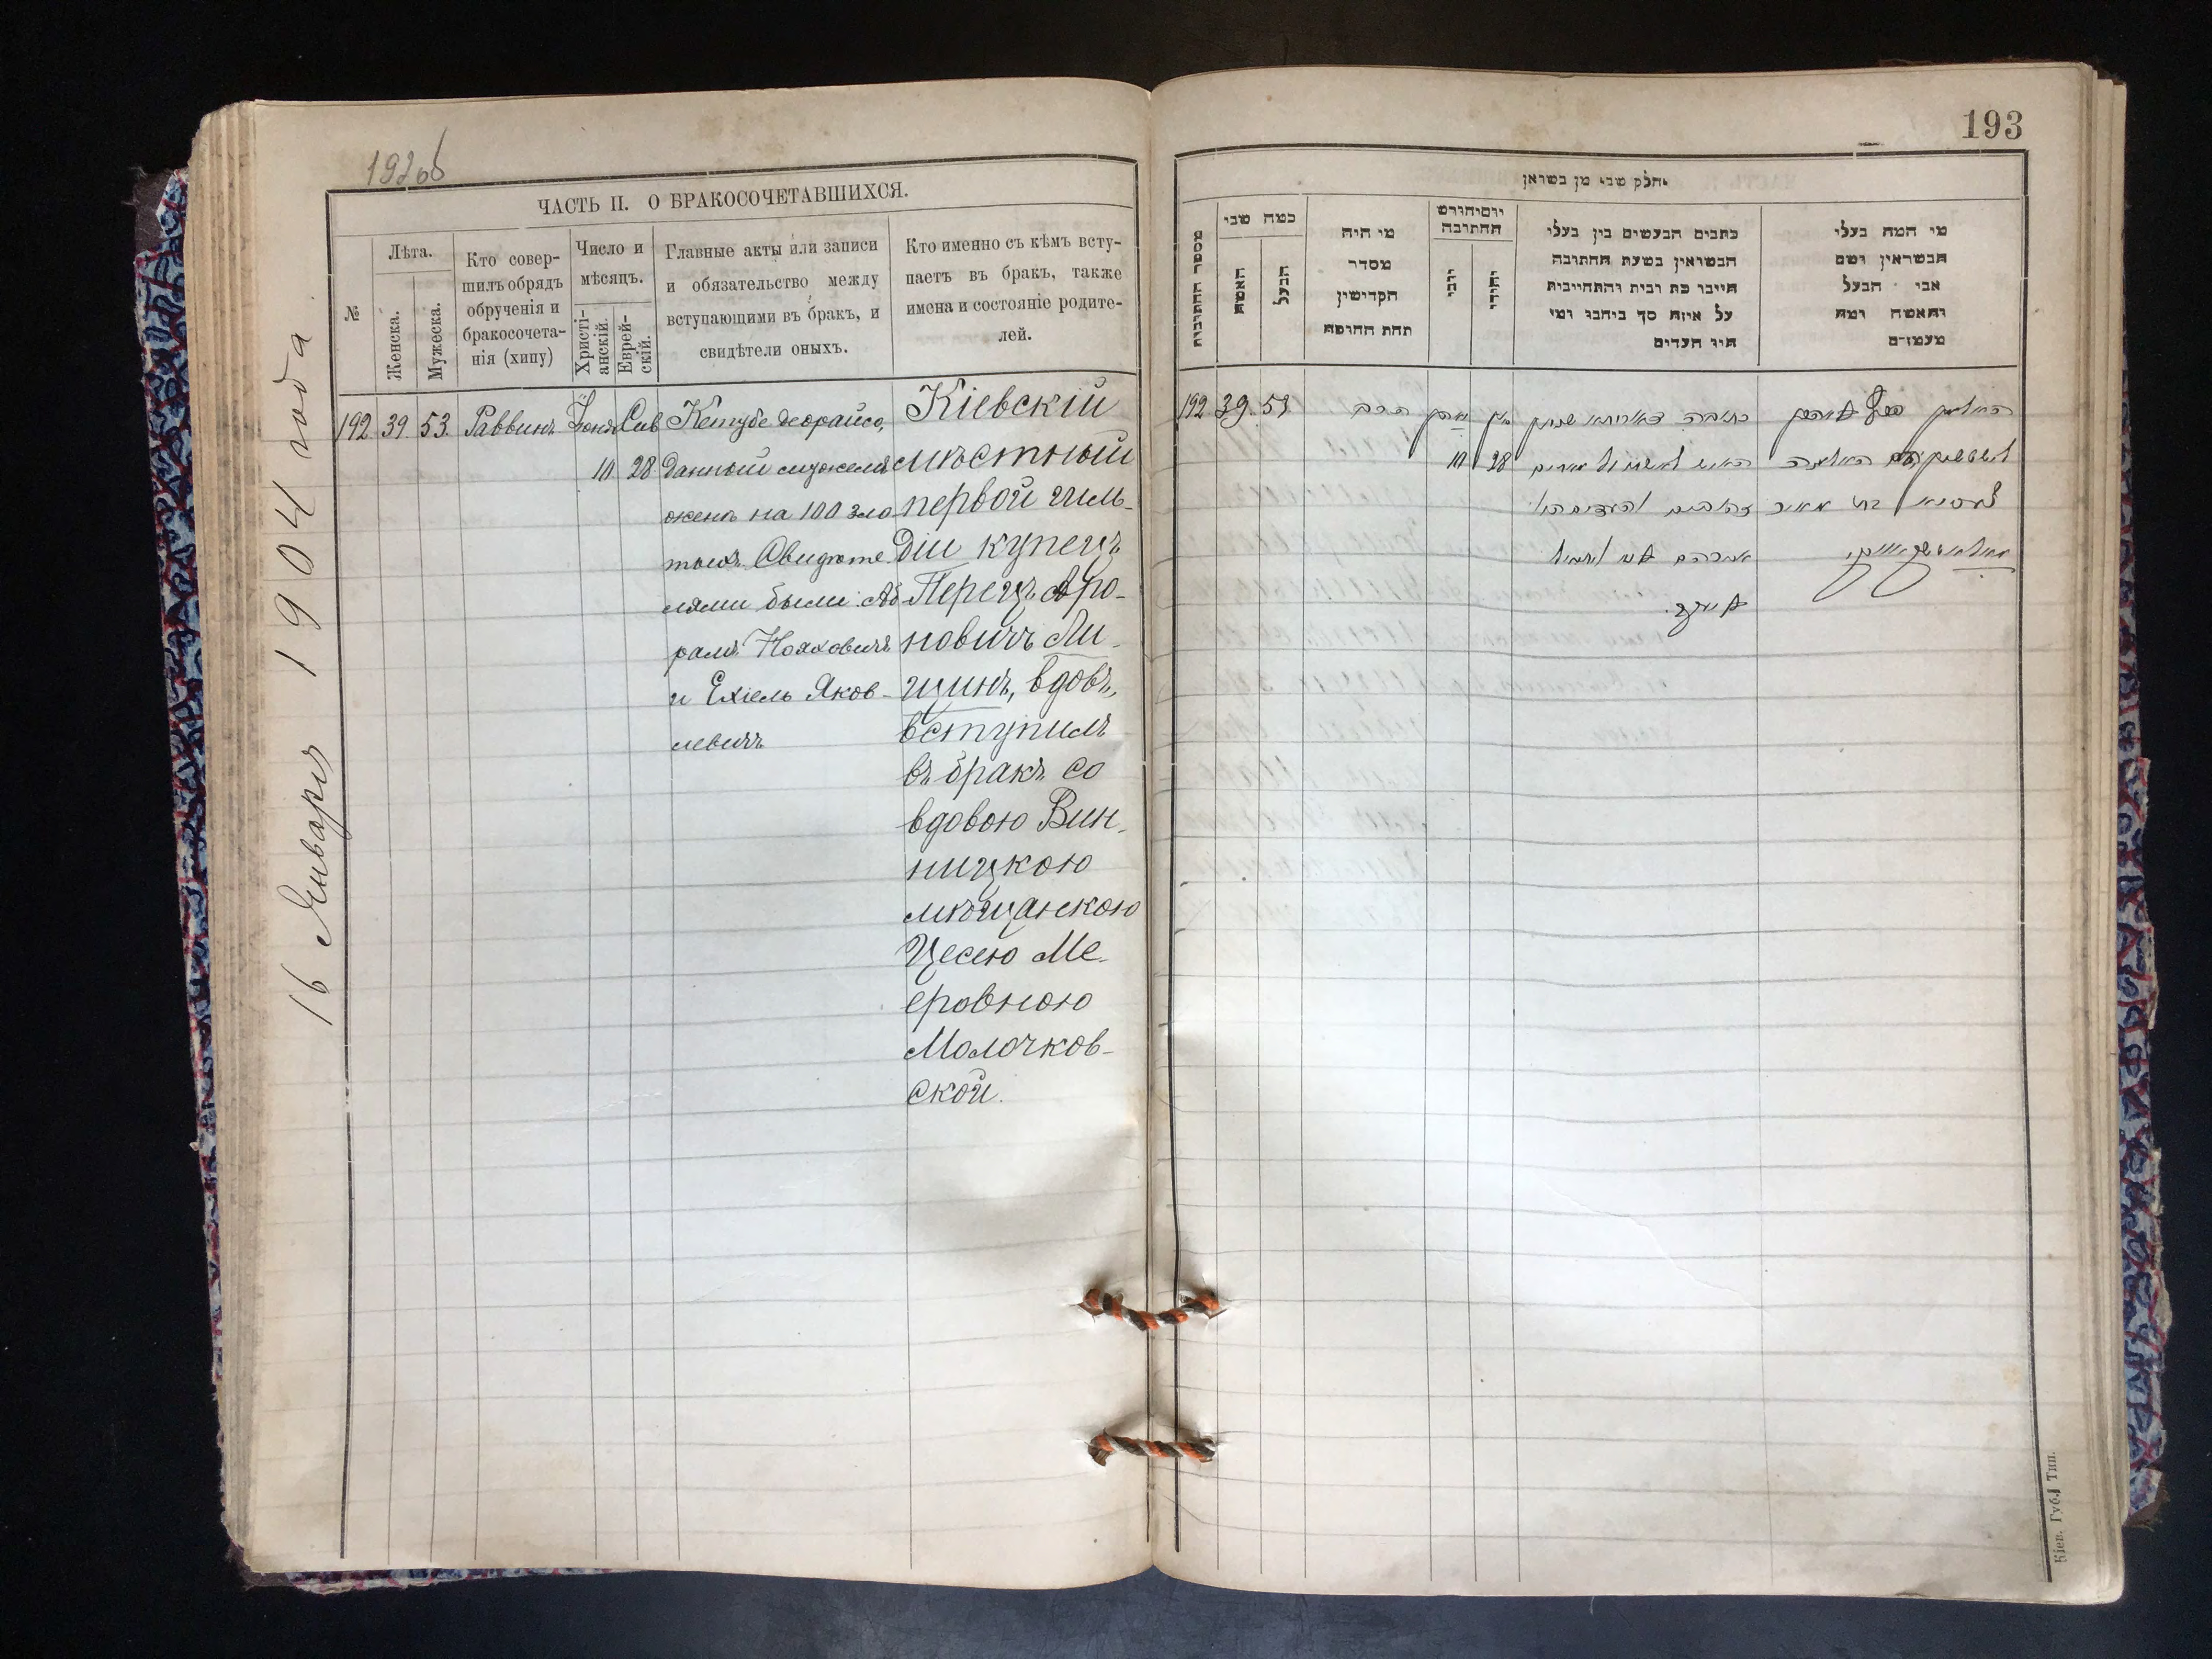 192об
16 Января 1904 года
ЧАСТЬ II. О БРАКОСОЧЕТАВШИХСЯ.
№
Лѣта.
Женска.
Мужеска.
Кто совер-
шилъ обрядъ
обрученія и
бракосочета-
нія (хипу)
Число и
мѣсяцъ.
Христі-
анскій.
Еврей-
скій.
Главные акты или записи
и обязательство между
вступающими въ бракъ, и
свидѣтели оныхъ.
Кто именно съ кѣмъ всту-
паетъ въ бракъ, также
имена и состояніе родите-
лей.
192 39 53. Раввинъ Іюня Сив
10 28
Кетубе деорайсо,
данный мужемъ
женѣ на 100 зло
тыхъ. Свидѣте
лями были: Аб
рамъ Нояховичъ
и Ехіель Яков-
левичъ
Кіевскій
мѣстный
первой гиль-
діи купецъ
Перецъ Аро-
новичъ Ли-
щинъ, вдовъ,
вступилъ
въ бракъ со
вдовою Вин-
ницкою
мѣщанкою
Цесею Ме-
еровною
Молочков-
ской.
193
חלק שני מן נשואין
מספר החתונה
כמה שני
האשה
הבעל
מי היה
מסדר
הקדושין
תחת החופה
יום וחודש
החתונה
נוצרי
יהודי
כתבים הנעשים בין בעלי
הנשואין בשעת החתונה
היינו כת ובית והתחייבות
על איזה סך ניתנו ומי
היו העדים
מי המה בעלי
הנשואין ושם
אבי הבעל
והאשה ומה
מעמדם
192 39. 53. הרב
יוני סיון
10 28
כתובה דאורייתא שנתן
האיש לאשתו
זהובים והעדים היו
אברהם
האלמן
האלמנה
בת מאיר
Кіев. Губ. Тип.